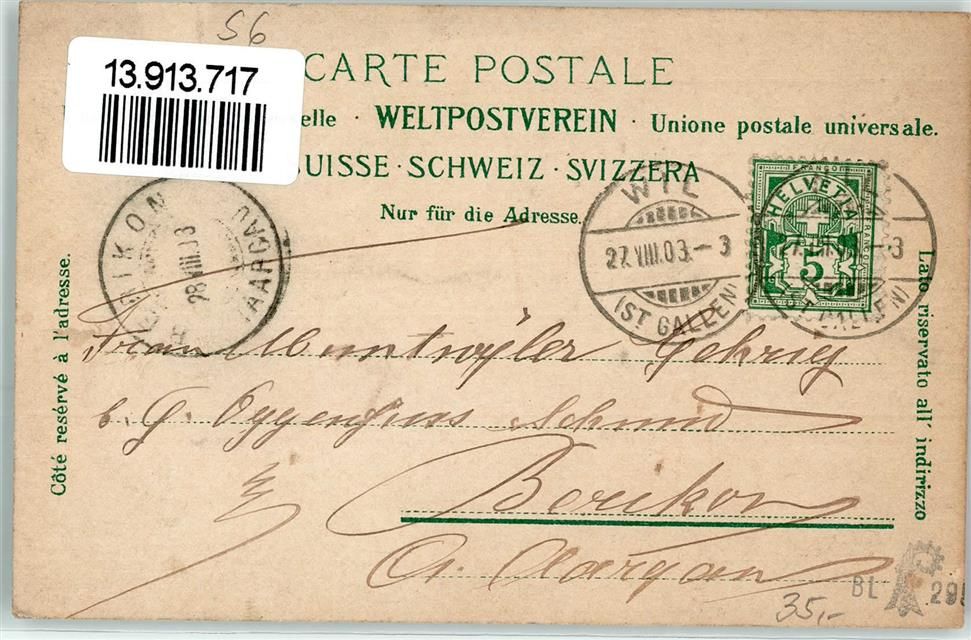 56
13.913.717
CARTE POSTALE
elle · WELTPOSTVEREIN · Unione postale universale.
SUISSE · SCHWEIZ · SVIZZERA
Nur für die Adresse.
WIL
27.VIII.03.–3
(ST GALLEN)
FRANCO
HELVETIA
5
–3
28.VIII.03
(AARGAU)
Côté resérvé à l'adresse.
Lato riservato all' indirizzo
Frau Muntwyler Gehrig
b. G. Oggenfuss Schmid
Berikon
Ct. Aargau
35,-
BL